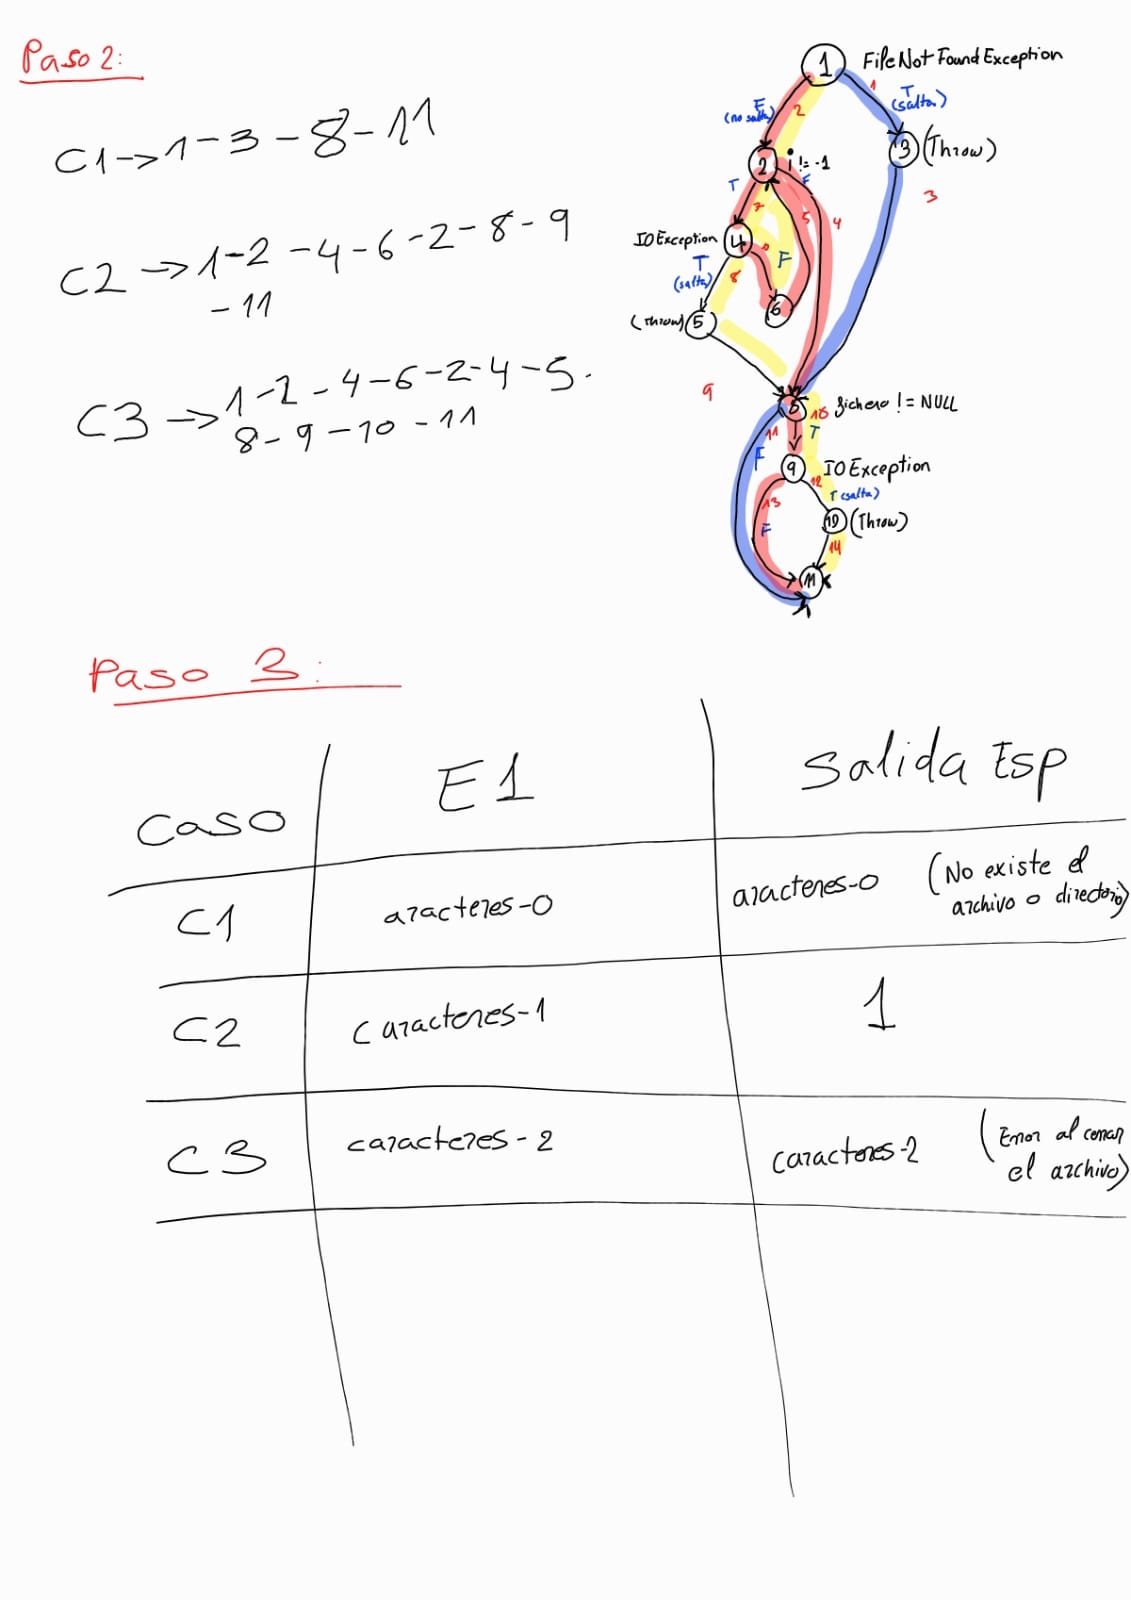 Paso 2:
C1 -> 1 - 3 - 8 - 11
C2 -> 1 - 2 - 4 - 6 - 2 - 8 - 9
- 11
C3 -> 1 - 2 - 4 - 6 - 2 - 4 - 5 -
8 - 9 - 10 - 11
1 FileNotFoundException
F
(no salta)
2
1
T
(salta)
2 i != -1
3 (Throw)
T
F
7
5
4
3
IOException 4
6
T
(salta)
8
F
6
(Throw) 5
9
8 fichero != NULL
10
11
T
F
9 IOException
12
T (salta)
13
F
10 (Throw)
14
11
Paso 3:
Caso E1 Salida Esp
C1 aracteres-0 aracteres-0 (No existe el
archivo o directorio)
C2 Caracteres-1 1
C3 caracteres-2 caracteres-2 (Error al cerrar
el archivo)